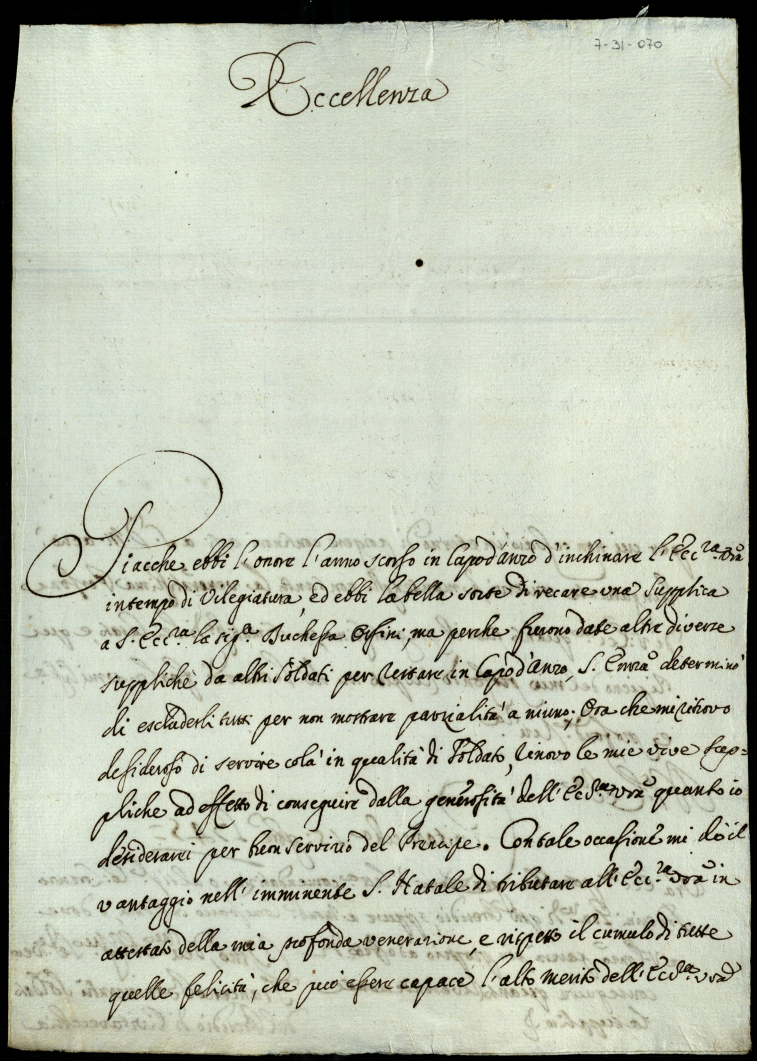 7-31-070
Eccellenza
Giacche ebbi l'onore l'anno scorso in Capod'anzo d'inchinare l'Ecc.za Vra
in tempo di Vilegiatura, ed ebbi la bella sorte di recare una Supplica
a S. Ecc.za la Sig.a Duchessa Orsini, ma perche furono date altre diverze
suppliche da altri Soldati per restare in Capod'Anzo, S. Emza determinò
di escluderli tutti per non mostrare parzialità a niuno; Ora che mi ritrovo
desideroso di servire colà in qualità di Soldato, rinovo le mie vive sup=
pliche ad effetto di conseguire dalla generosità dell'Ecc.za Vra quanto io
desiderarei per buon servizio del Prencipe. Con tale occasione mi dò il
vantaggio nell'imminente S. Natale di tributare all'Ecc.za Vra in
attestato della mia profonda venerazione, e rispetto il cumulo di tutte
quelle felicità, che può essere capace l'alto merito dell'Ecc.za Vra